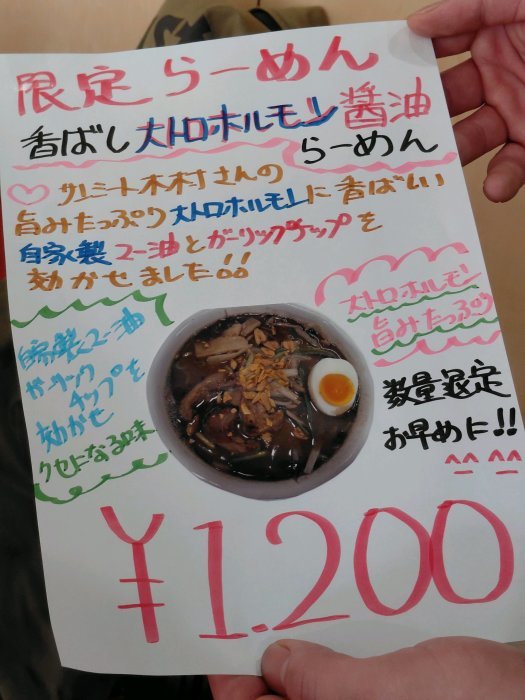 限定らーめん
香ばし大トロホルモン醤油
らーめん
サンミート木村さんの
旨みたっぷり大トロホルモンに香ばしい
自家製マー油とガーリックチップを
効かせました!!
大トロホルモン
旨みたっぷり
自家製マー油
ガーリック
チップを
効かせ
クセになる味
数量限定
お早めに!!
¥1.200